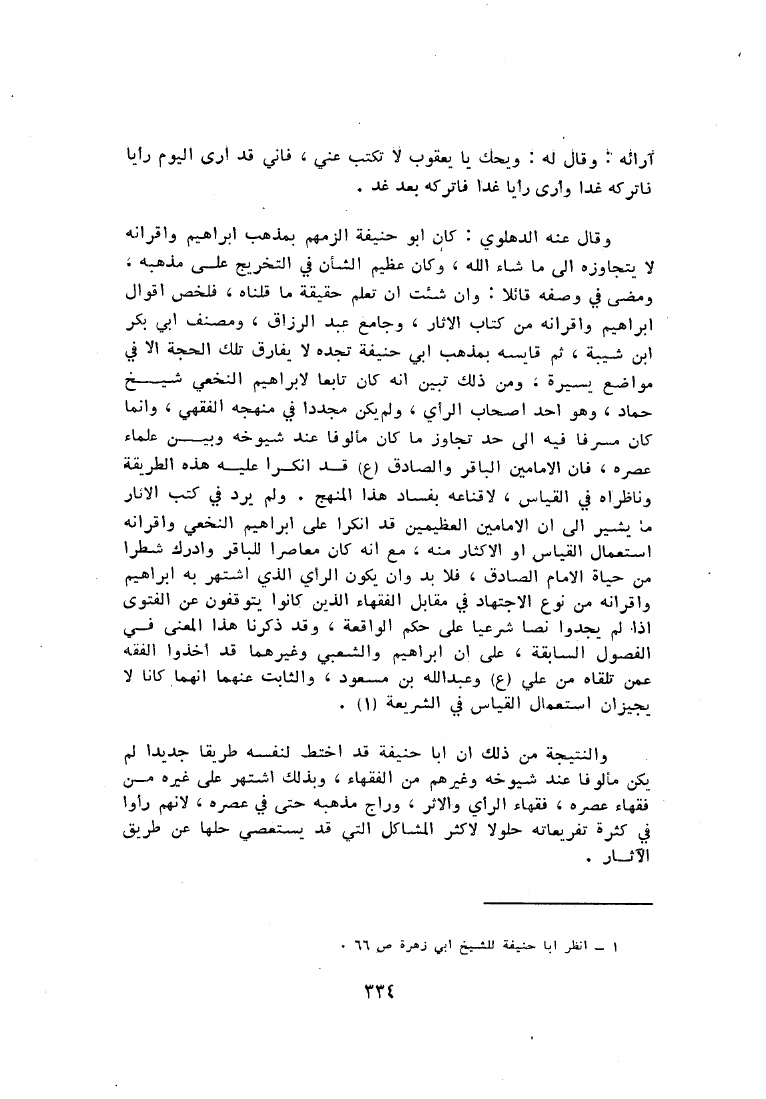 آرائه : وقال له : ويحك يا يعقوب لا تكتب عني ، فاني قد ارى اليوم رأيا
فاتركه غدا وأرى رأيا غدا فاتركه بعد غد .
وقال عنه الدهلوي : كان ابو حنيفة الزمهم بمذهب ابراهيم واقرانه
لا يتجاوزه الى ما شاء الله ، وكان عظيم الشأن في التخريج علـى مذهبه ؛
ومضى في وصفه قائلا : وان شئت ان تعلم حقيقة ما قلناه ، فلخص اقوال
ابراهيم واقرانه من كتاب الاثار ، وجامع عبد الرزاق ، ومصنف ابي بكر
ابن شيبة ، ثم قايسه بمذهب ابي حنيفة تجده لا يفارق تلك الحجة الا في
مواضع يسيرة ؛ ومن ذلك تبين انه كان تابعا لابراهيم النخعي شيـــخ
حماد ، وهو احد اصحاب الرأي ، ولم يكن مجددا في منهجه الفقهي ، وانما
كان مسرفا فيه الى حد تجاوز ما كان مألوفا عند شيوخه وبيـــن علماء
عصره ، فان الامامين الباقر والصادق (ع) قــد انكـرا عليـه هذه الطريقة
وناظراه في القياس ، لاقناعه بفساد هذا المنهج . ولم يرد في كتب الاثار
ما يشير الى ان الامامين العظيمين قد انكرا على ابراهيم النخعي واقرانه
استعمال القياس او الاكثار منه ، مع انه كان معاصرا للباقر وادرك شطرا
من حياة الامام الصادق ، فلا بد وان يكون الرأي الذي اشتهر به ابراهيم
واقرانه من نوع الاجتهاد في مقابل الفقهاء الذين كانوا يتوقفون عن الفتوى
اذا لم يجدوا نصا شرعيا على حكم الواقعة ، وقد ذكرنا هذا المعنى فـي
الفصول السابقة ، على ان ابراهيم والشعبي وغيرهما قد اخذوا الفقه
عمن تلقاه من علي (ع) وعبدالله بن مسعود ، والثابت عنهما انهما كانا لا
يجيزان استعمال القياس في الشريعة (١) .
والنتيجة من ذلك ان ابا حنيفة قد اختط لنفسه طريقا جديدا لم
يكن مألوفا عند شيوخه وغيرهم من الفقهاء ، وبذلك اشتهر على غيره مـن
فقهاء عصره ، فقهاء الرأي والاثر ، وراج مذهبه حتى في عصره ، لانهم رأوا
في كثرة تفريعاته حلولا لاكثر المشاكل التي قد يستعصي حلها عن طريق
الآثـار .
١ – انظر ابا حنيفة للشيخ ابي زهرة ص ٦٦ .
٣٣٤